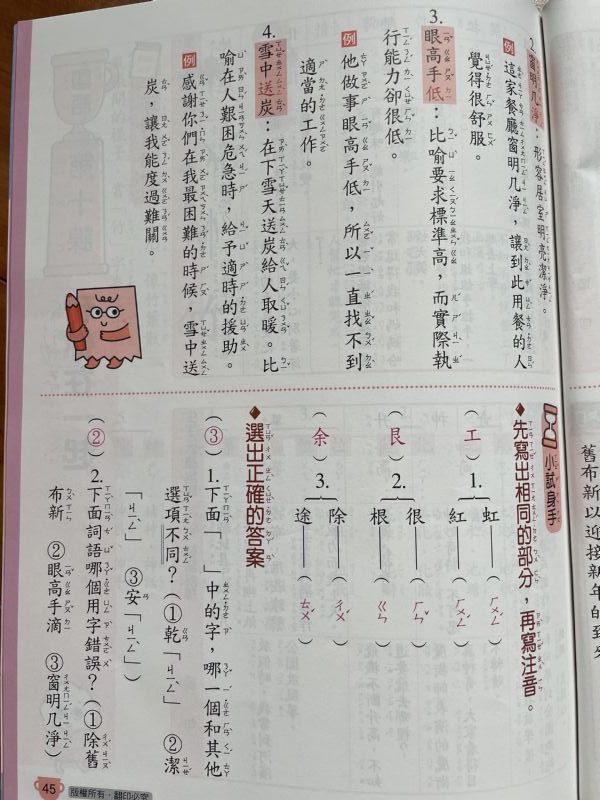 舊布新以迎接新年的到
2.窗明几淨：形容居室明亮潔淨。
例 這家餐廳窗明几淨，讓到此用餐的人
覺得很舒服。
3.眼高手低：比喻要求標準高，而實際執
行能力卻很低。
例 他做事眼高手低，所以一直找不到
適當的工作。
4.雪中送炭：在下雪天送炭給人取暖。比
喻在人艱困危急時，給予適時的援助。
例 感謝你們在我最困難的時候，雪中送
炭，讓我能度過難關。
小試身手
◆先寫出相同的部分，再寫注音。
（工）1.
虹（ㄏㄨㄥˊ）
紅（ㄏㄨㄥˊ）
（艮）2.
很（ㄏㄣˇ）
根（ㄍㄣ）
（余）3.
除（ㄔㄨˊ）
途（ㄊㄨˊ）
◆選出正確的答案
（③）1.下面「 」中的字，哪一個和其他
選項不同？（①乾「ㄐㄧㄥˋ」 ②潔
「ㄐㄧㄥˋ」 ③安「ㄐㄧㄥˋ」）
（②）2.下面詞語哪個用字錯誤？（①除舊
布新 ②眼高手滴 ③窗明几淨）
45 版權所有，翻印必究